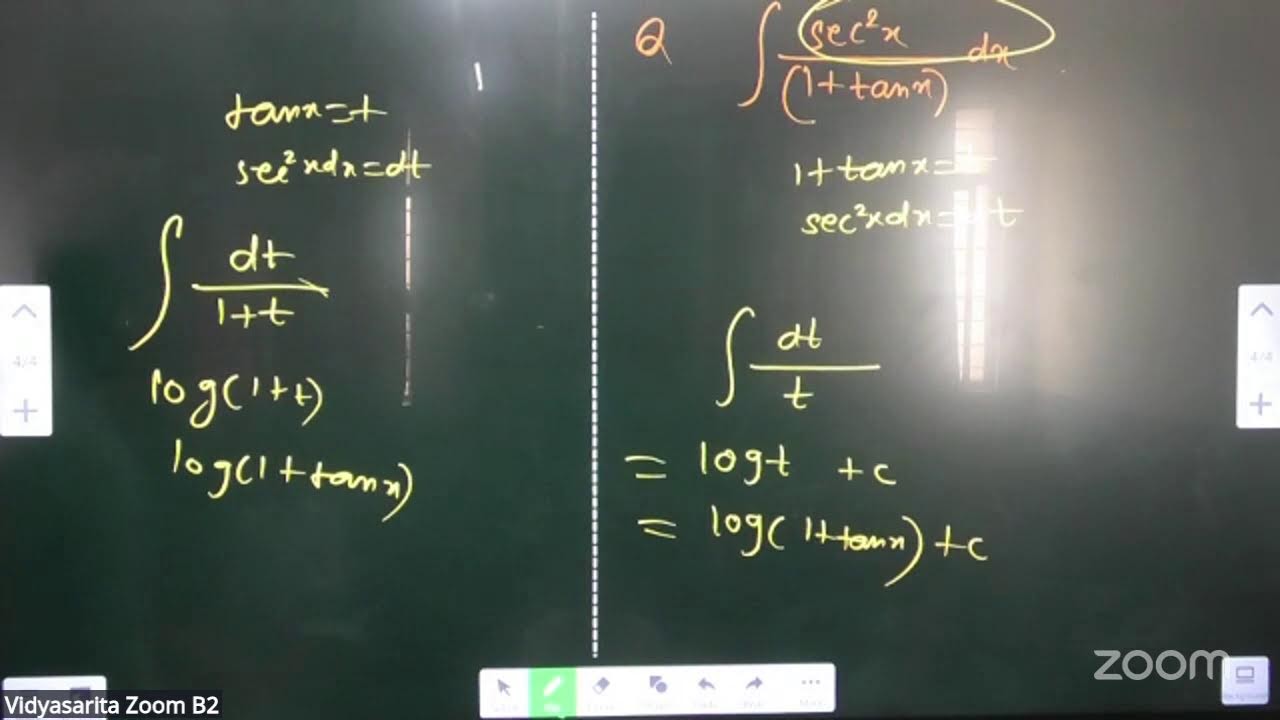 tanx=t
sec²xdx=dt
∫ dt
1+t
log(1+t)
log(1+tanx)
Q ∫ sec²x dx
(1+tanx)
1+tanx=t
sec²xdx=dt
∫ dt
t
= logt +c
= log(1+tanx)+c
4/4
4/4
zoom
Vidyasarita Zoom B2